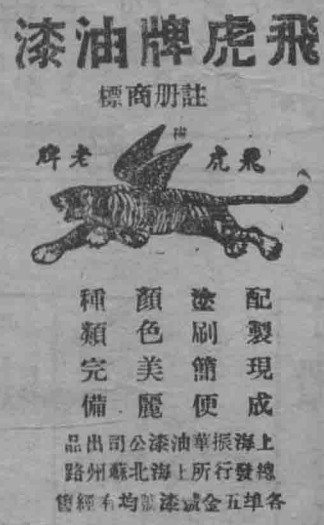 飛虎牌油漆
註册商標
飛虎 老牌
配製現成
塗刷簡便
顏色美麗
種類完備
上海振華油漆公司出品
總發行所上海北蘇州路
各埠五金號漆號均有經售